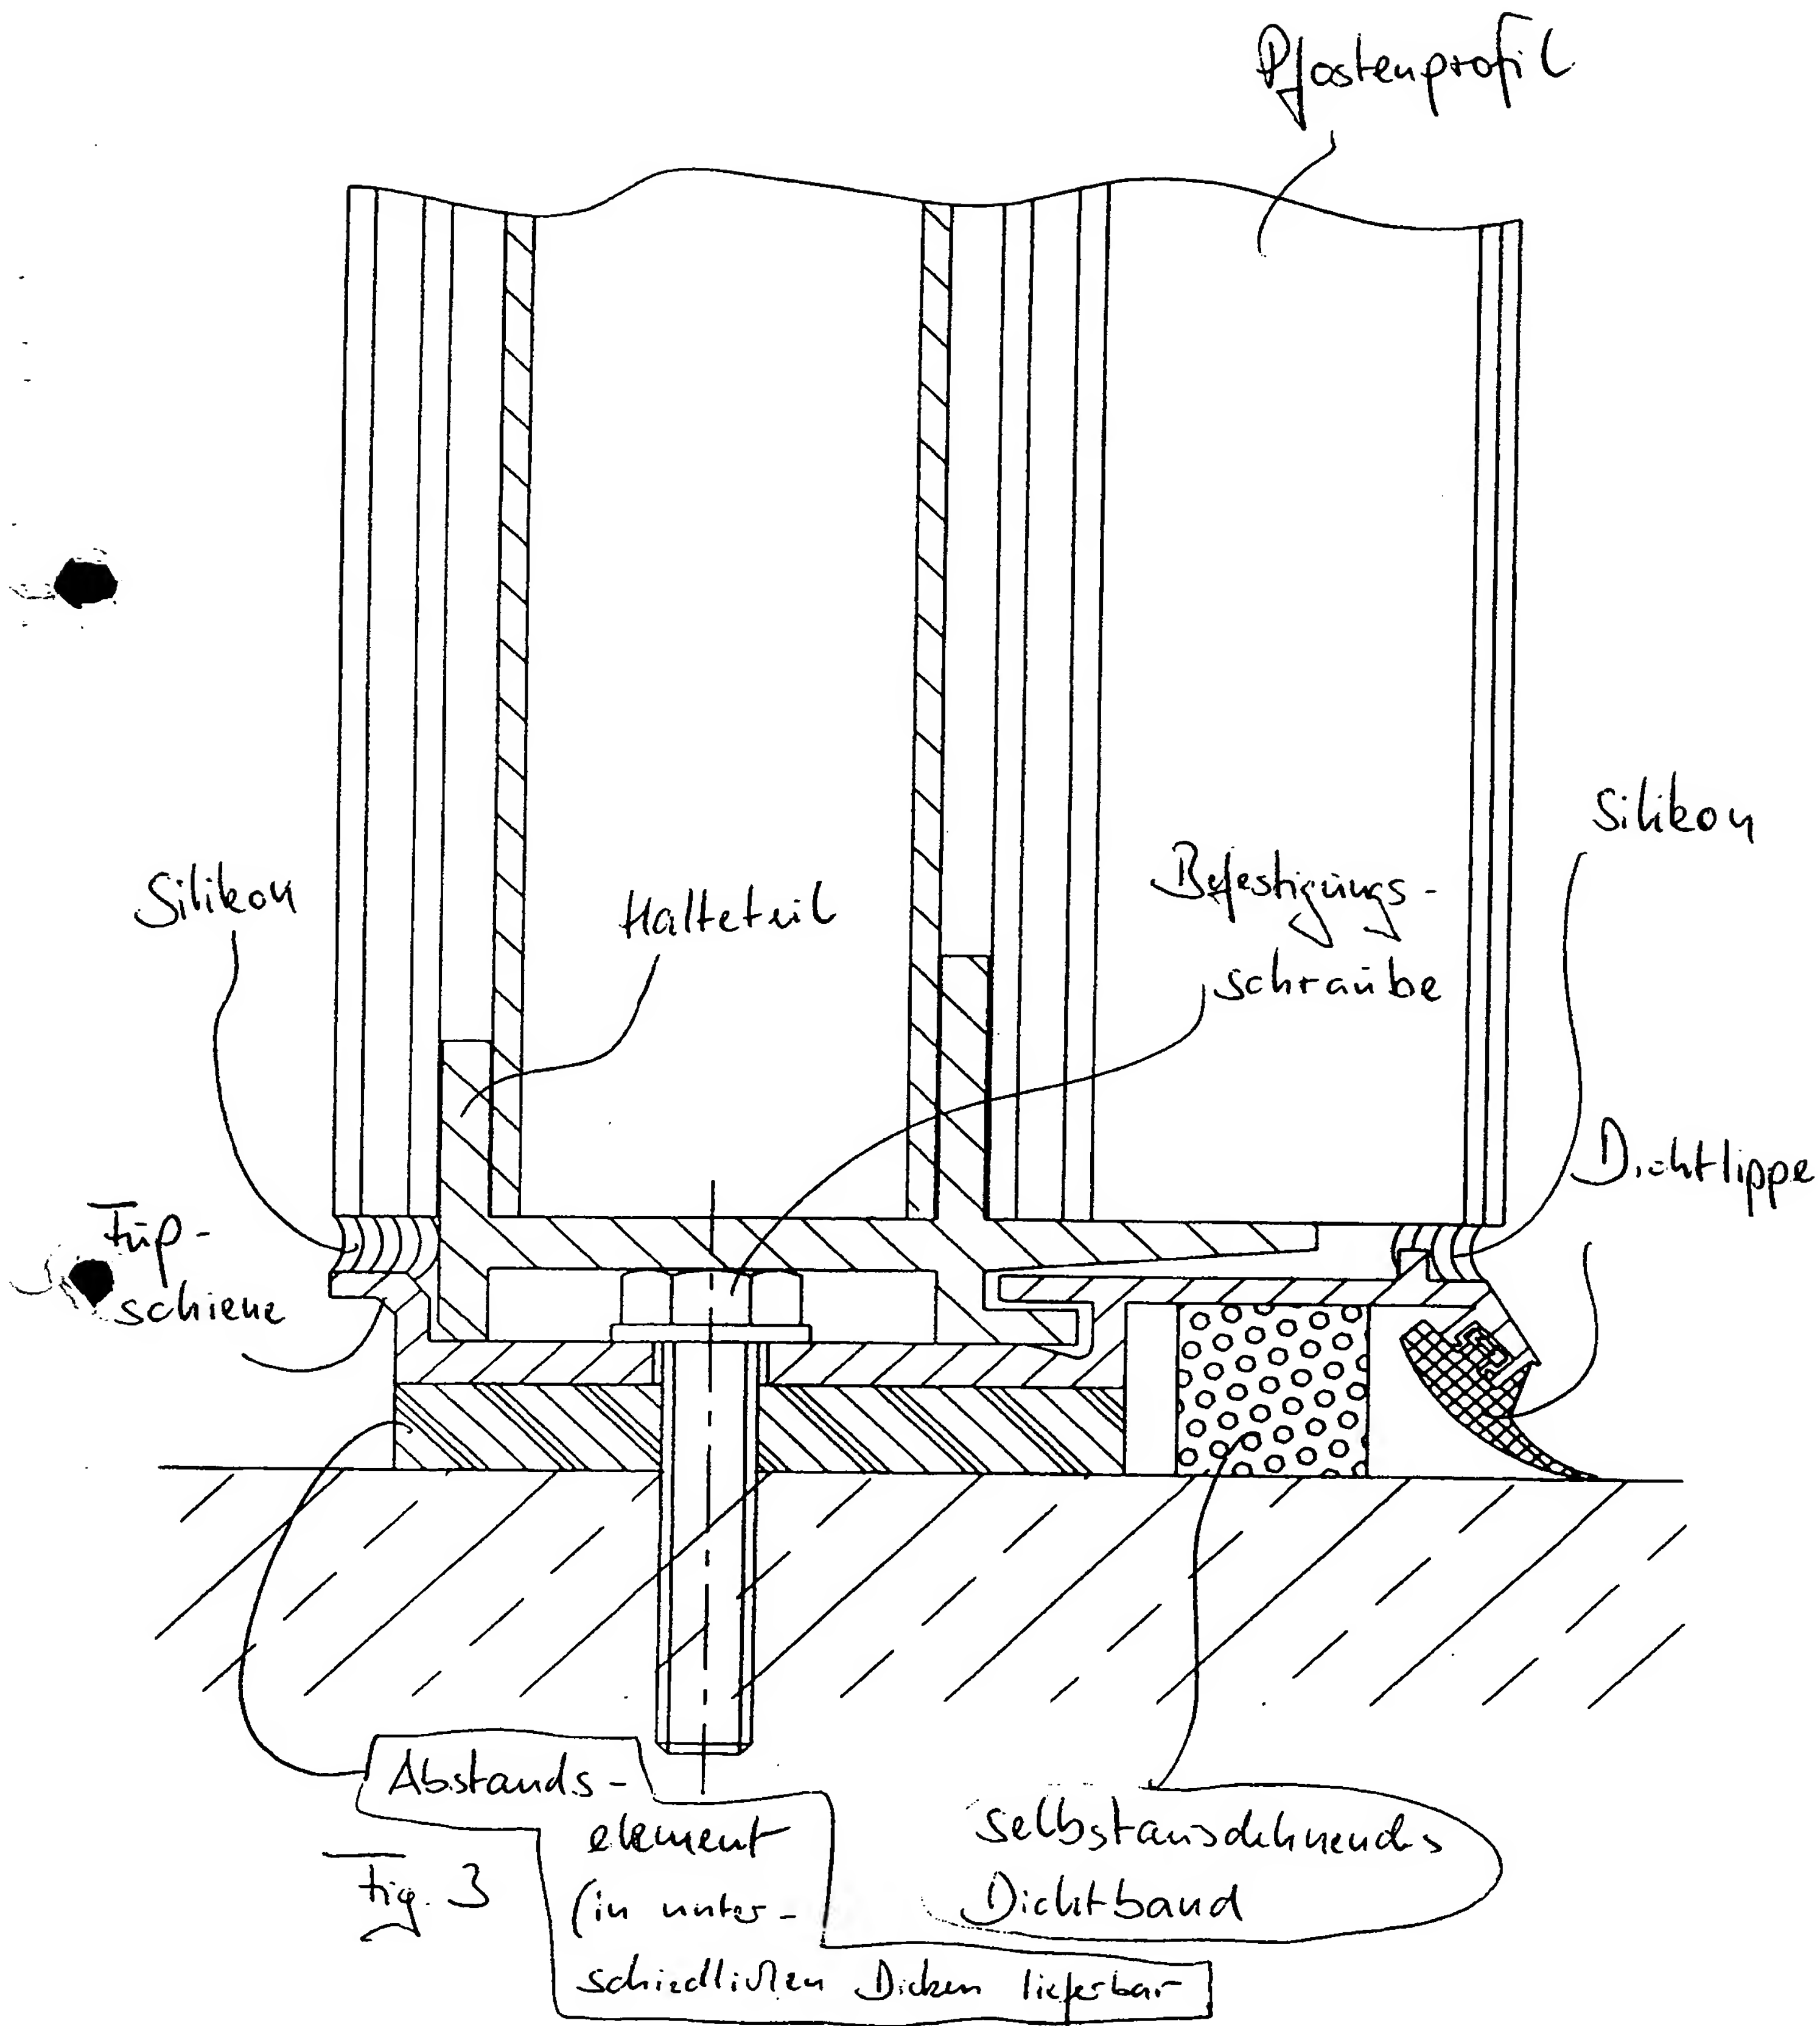 Pfostenprofil
Silikon
Silikon
Halteteil
Befestigungs-
schraube
Dichtlippe
Fuß-
schiene
Abstands-
element
(in unter-
schiedlichen Dicken lieferbar
selbstausdehnendes
Dichtband
Fig. 3